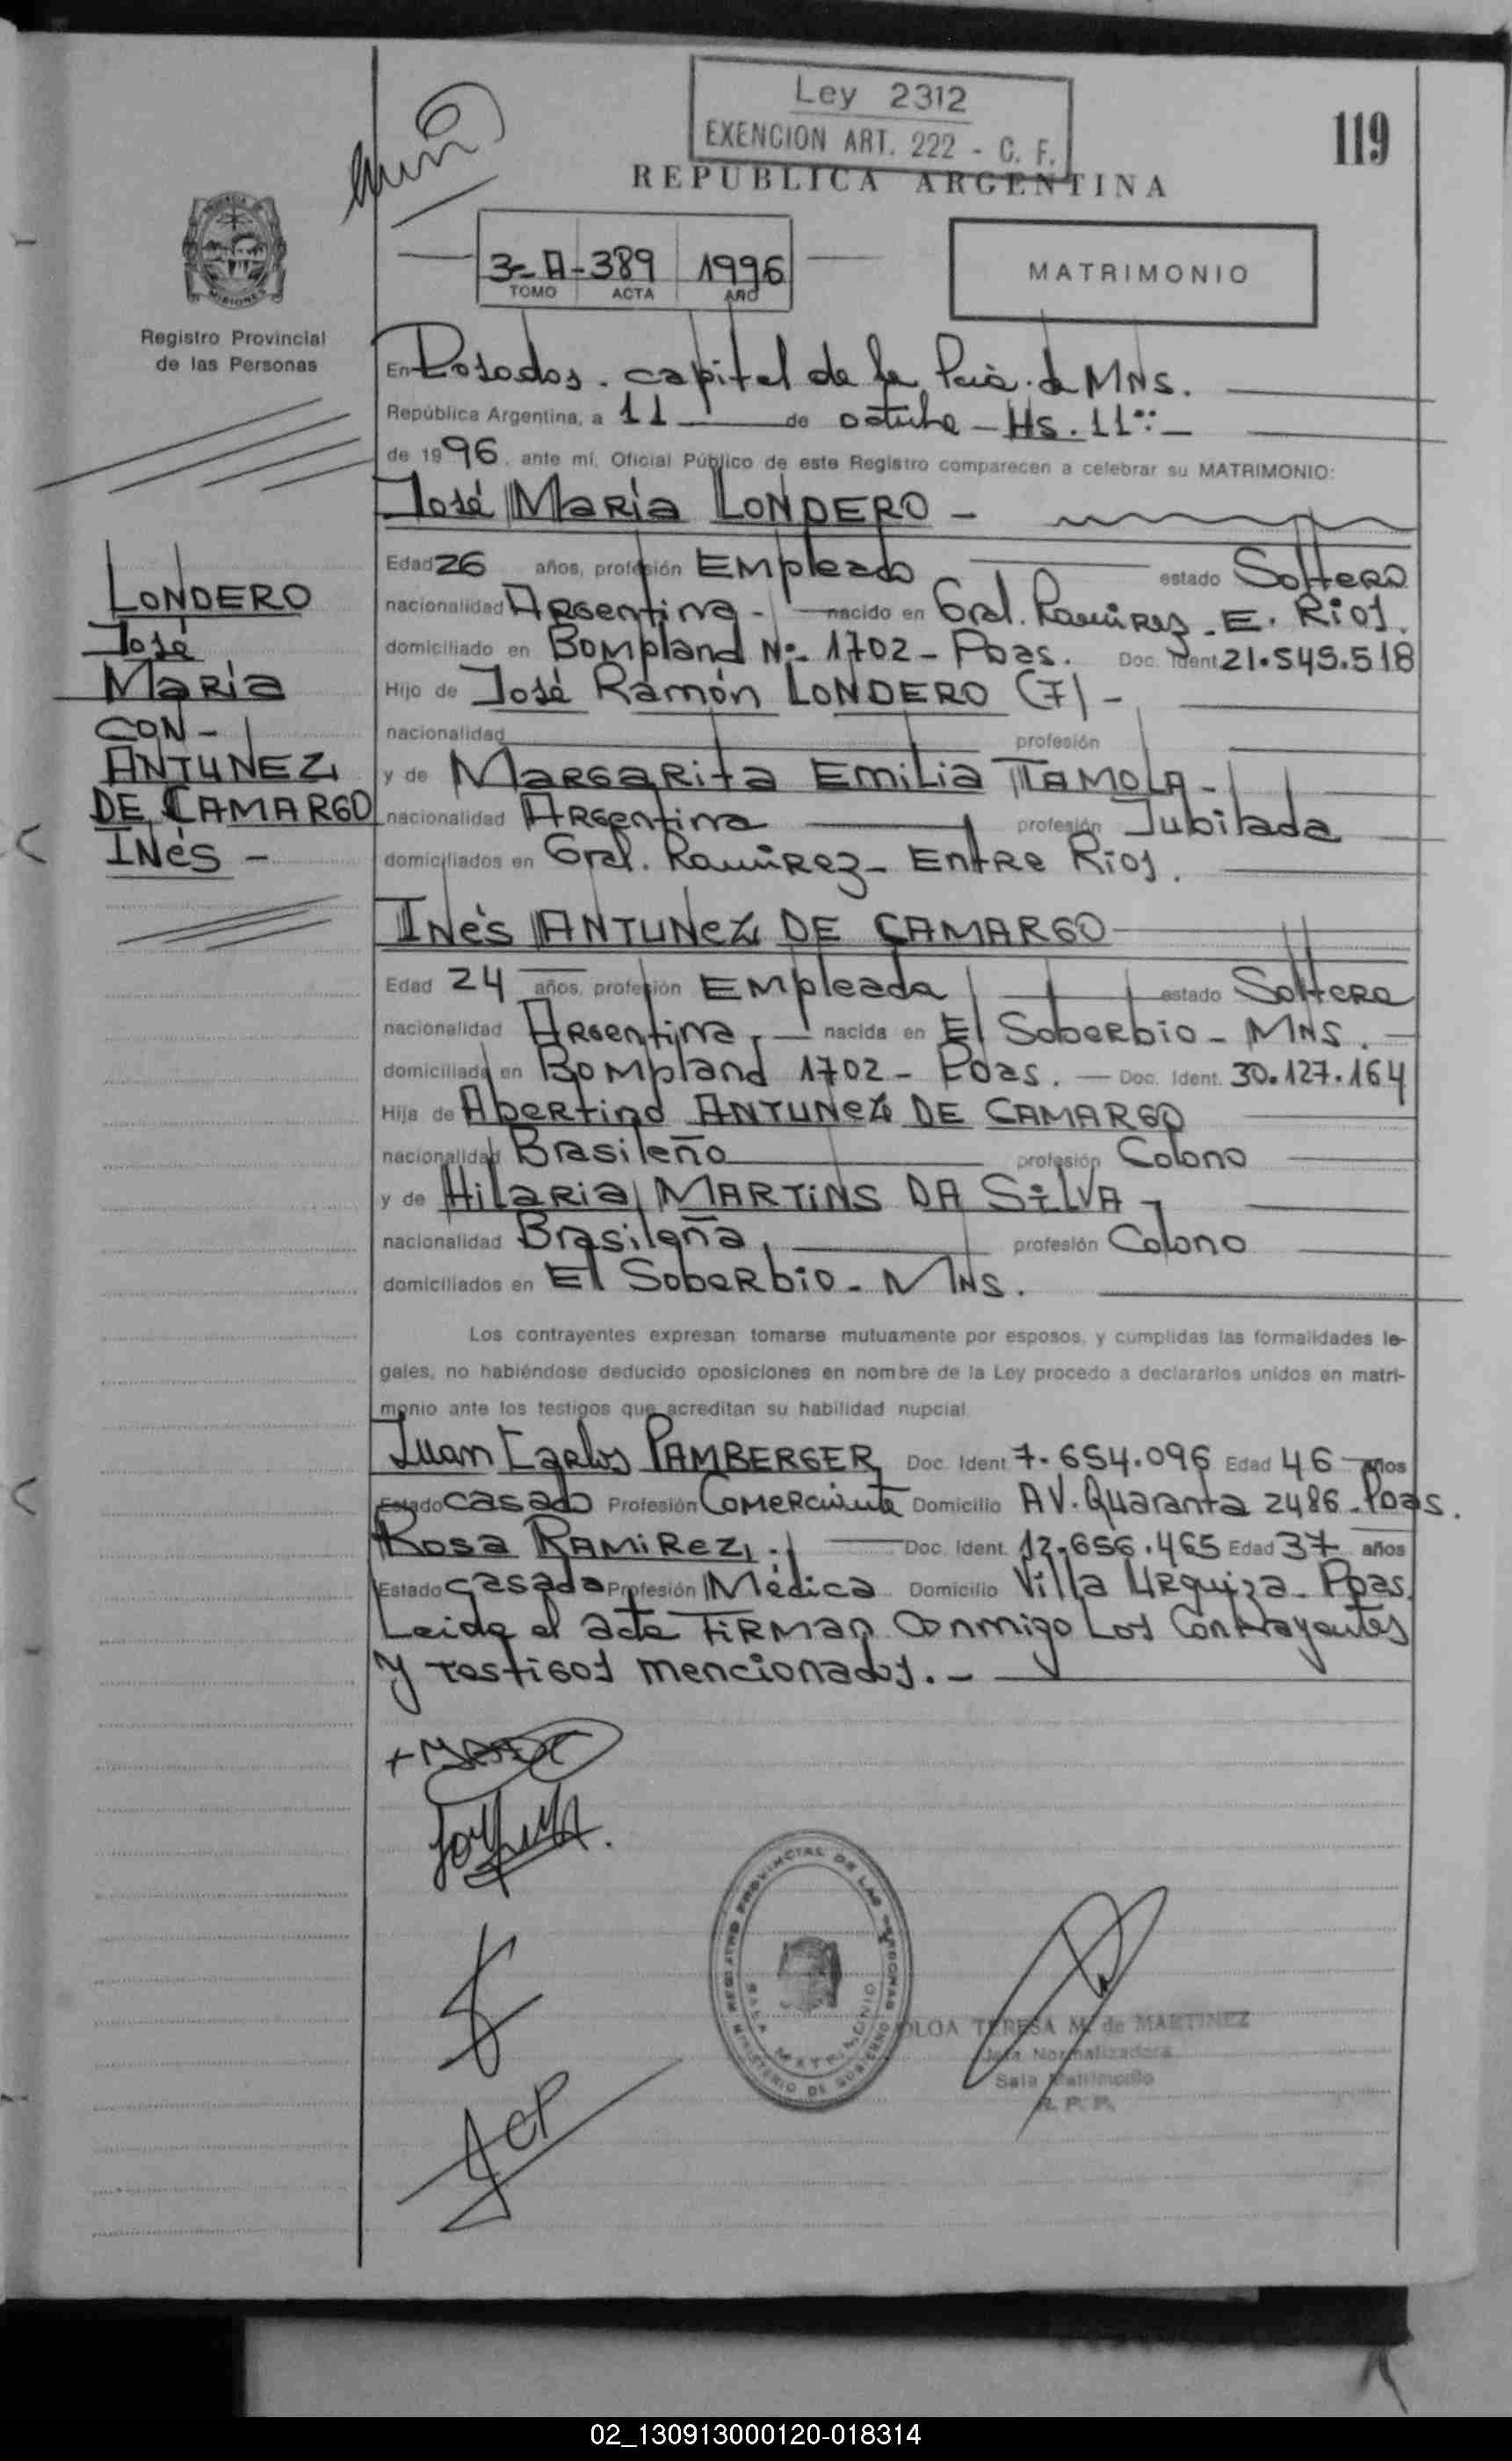 Ley 2312
EXENCION ART. 222 - C. F.
119
REPUBLICA ARGENTINA
3-A-389 1996
TOMO ACTA AÑO
MATRIMONIO
MISIONES
Registro Provincial
de las Personas
En Posadas. capital de la Pcia. de MNS.
República Argentina, a 11 de octubre - Hs. 11:
de 1996, ante mí, Oficial Público de este Registro comparecen a celebrar su MATRIMONIO:
José María LONDERO -
Edad 26 años, profesión Empleado estado Soltero
nacionalidad Argentina - nacido en Gral. Ramirez - E. Rios.
domiciliado en Bompland Nº 1702 - Pdas. Doc. Ident 21.545.518
Hijo de José Ramón LONDERO (7) -
nacionalidad profesión
y de Margarita Emilia TAMOLA -
nacionalidad Argentina profesión Jubilada
domiciliados en Gral. Ramirez - Entre Rios.
LONDERO
José
María
CON -
ANTUNEZ
DE CAMARGO
Inés -
Inés ANTUNEZ DE CAMARGO
Edad 24 años, profesión Empleada estado Soltera
nacionalidad Argentina - nacida en El Soberbio - MNS.
domiciliada en Bompland 1702 - Pdas. - Doc. Ident. 30.127.164
Hija de Abertino ANTUNEZ DE CAMARGO
nacionalidad Brasileño profesión Colono
y de Hilaria MARTINS DA SILVA -
nacionalidad Brasileña, profesión Colono
domiciliados en El Soberbio - MNS.
Los contrayentes expresan tomarse mutuamente por esposos, y cumplidas las formalidades le-
gales, no habiéndose deducido oposiciones en nombre de la Ley procedo a declararlos unidos en matri-
monio ante los testigos que acreditan su habilidad nupcial.
Juan Carlos PAMBERGER Doc. Ident 7.654.096 Edad 46 años
Estado casado Profesión Comerciante Domicilio AV. Quaranta 2486 - Pdas.
Rosa RAMIREZ. Doc. Ident. 12.656.465 Edad 37 años
Estado casada Profesión Médica Domicilio Villa Urquiza - Pdas.
Leida el acta FIRMAN conmigo Los Contrayentes
y testigos mencionados. -
REGISTRO PROVINCIAL DE LAS PERSONAS
SALA MATRIMONIO
MINISTERIO DE GOBIERNO
OLGA TERESA M. de MARTINEZ
Jefa Normalizadora
Sala Matrimonio
R. P. P.
02_130913000120-018314